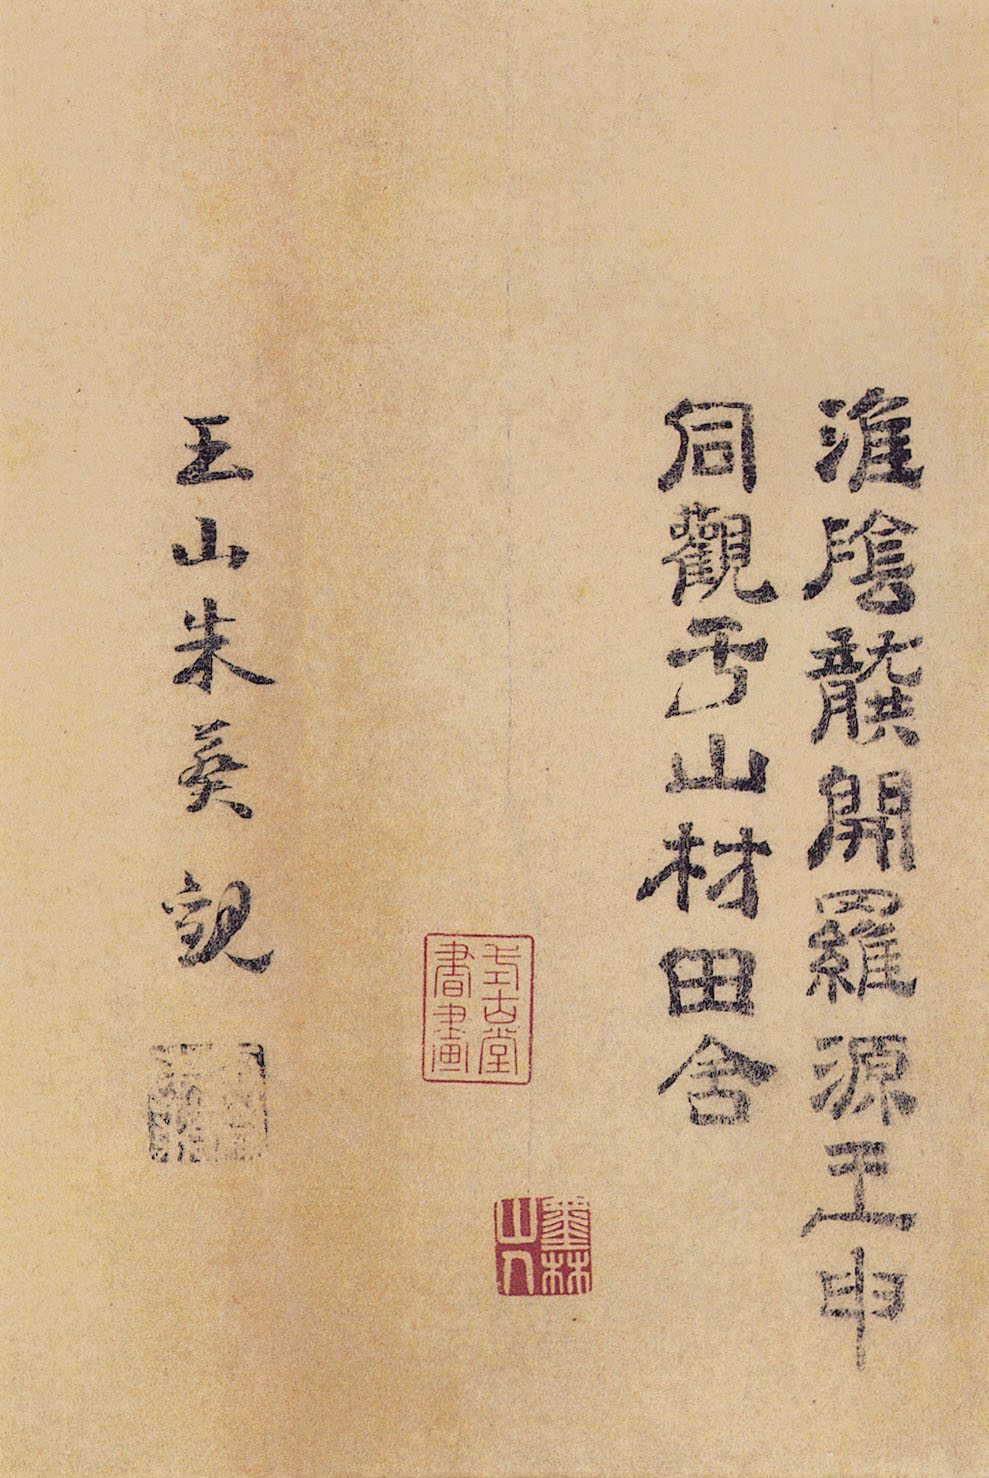 淮陰龔開羅源王申
同觀于山村田舍
式古堂
書畫
墨林
山人
玉山朱葵觀